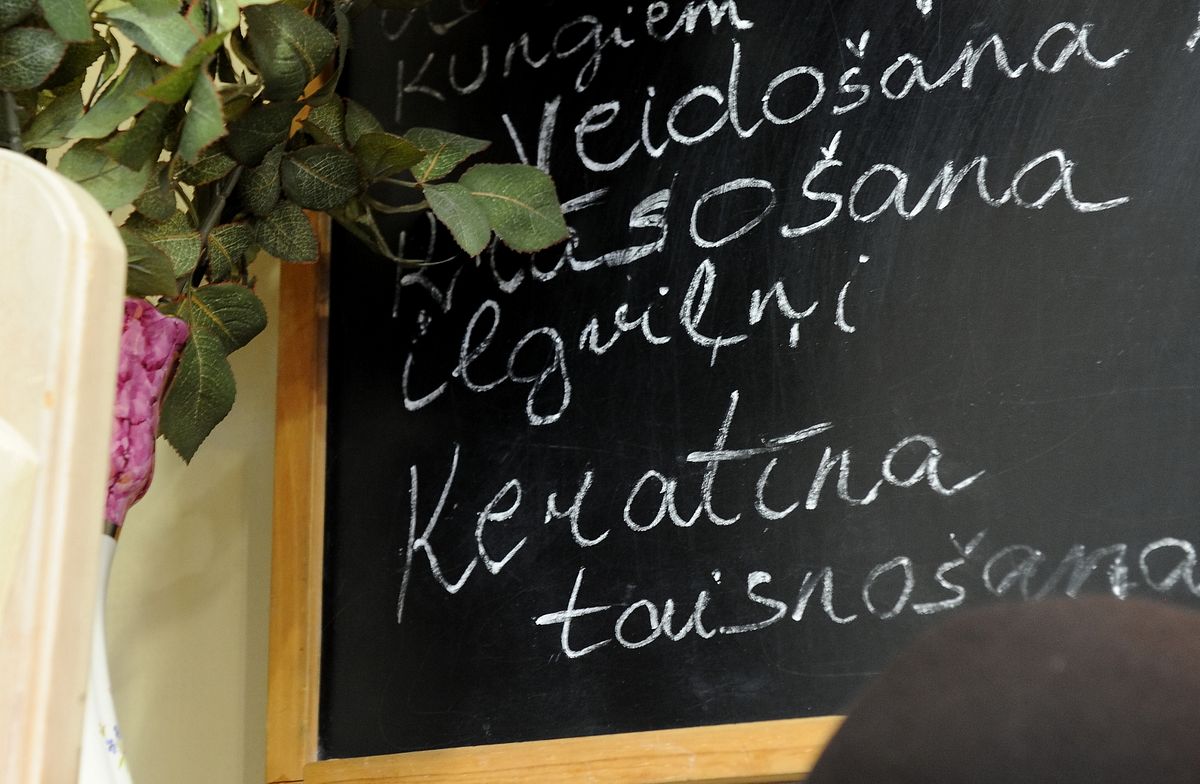 kungiem
Veidošana
krāsošana
ilgviļņi
Keratīna
taisnošana